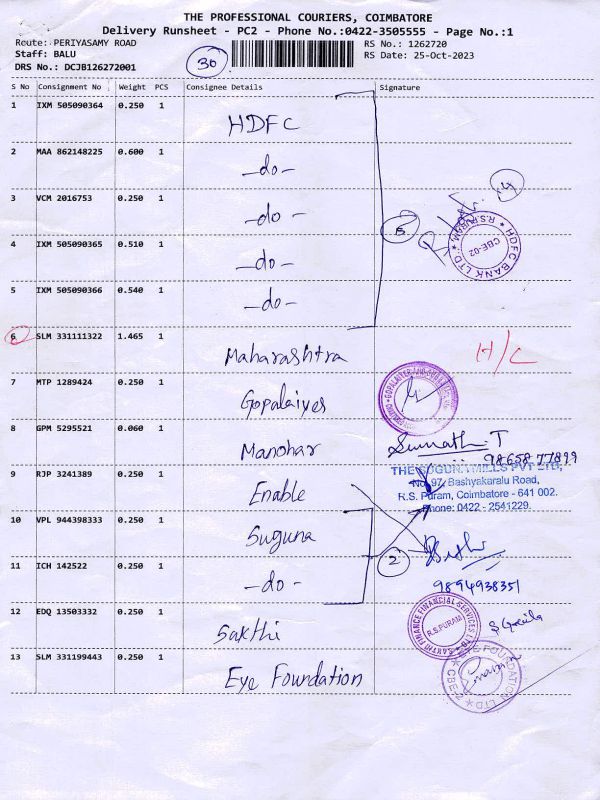 THE PROFESSIONAL COURIERS, COIMBATORE
Delivery Runsheet - PC2 - Phone No.:0422-3505555 - Page No.:1
Route: PERIYASAMY ROAD
Staff: BALU
DRS No.: DCJB126272001
30
RS No.: 1262720
RS Date: 25-Oct-2023
S No Consignment No Weight PCS Consignee Details Signature
1 IXM 505090364 0.250 1 HDFC
2 MAA 862148225 0.600 1 -do-
3 VCM 2016753 0.250 1 -do-
4 IXM 505090365 0.510 1 -do-
5 IXM 505090366 0.540 1 -do-
5
HDFC BANK LTD. R.S.PURAM,
CBE-02
6 SLM 331111322 1.465 1 Maharashtra H/C
7 MTP 1289424 0.250 1 Gopalaiyer
8 GPM 5295521 0.060 1 Manohar Sumathi T
98658 77899
THE SUGUNA MILLS PVT LTD,
No. 97, Bashyakaralu Road,
R.S. Puram, Coimbatore - 641 002.
Phone: 0422 - 2541229.
9 RJP 3241389 0.250 1 Enable
10 VPL 944398333 0.250 1 Suguna
11 ICH 142522 0.250 1 -do-
2
9894938351
12 EDQ 13503332 0.250 1 Sakthi
SAKTHI FINANCE FINANCIAL SERVICES LTD
R.S.PURAM
13 SLM 331199443 0.250 1 Eye Foundation
EYE FOUNDATION LTD CBE-2